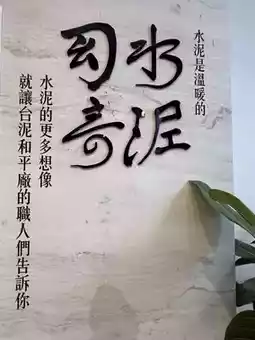 水泥是溫暖的
水泥
司奇
水泥的更多想像
就讓台泥和平廠的職人們告訴你